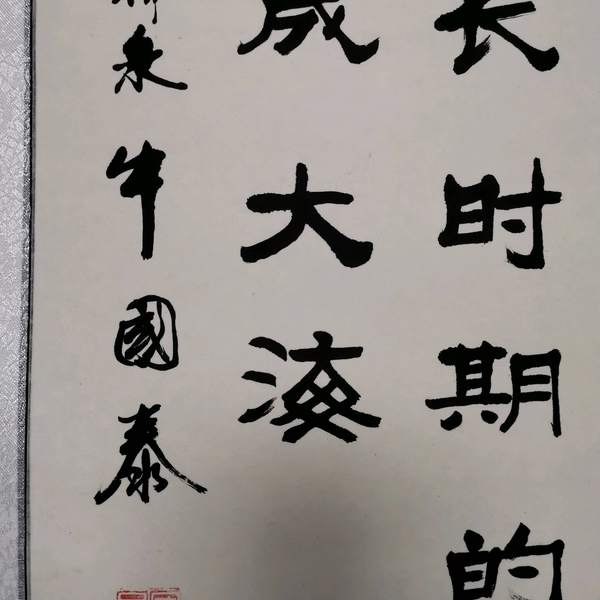 长时期的
成大海
泉牛國泰